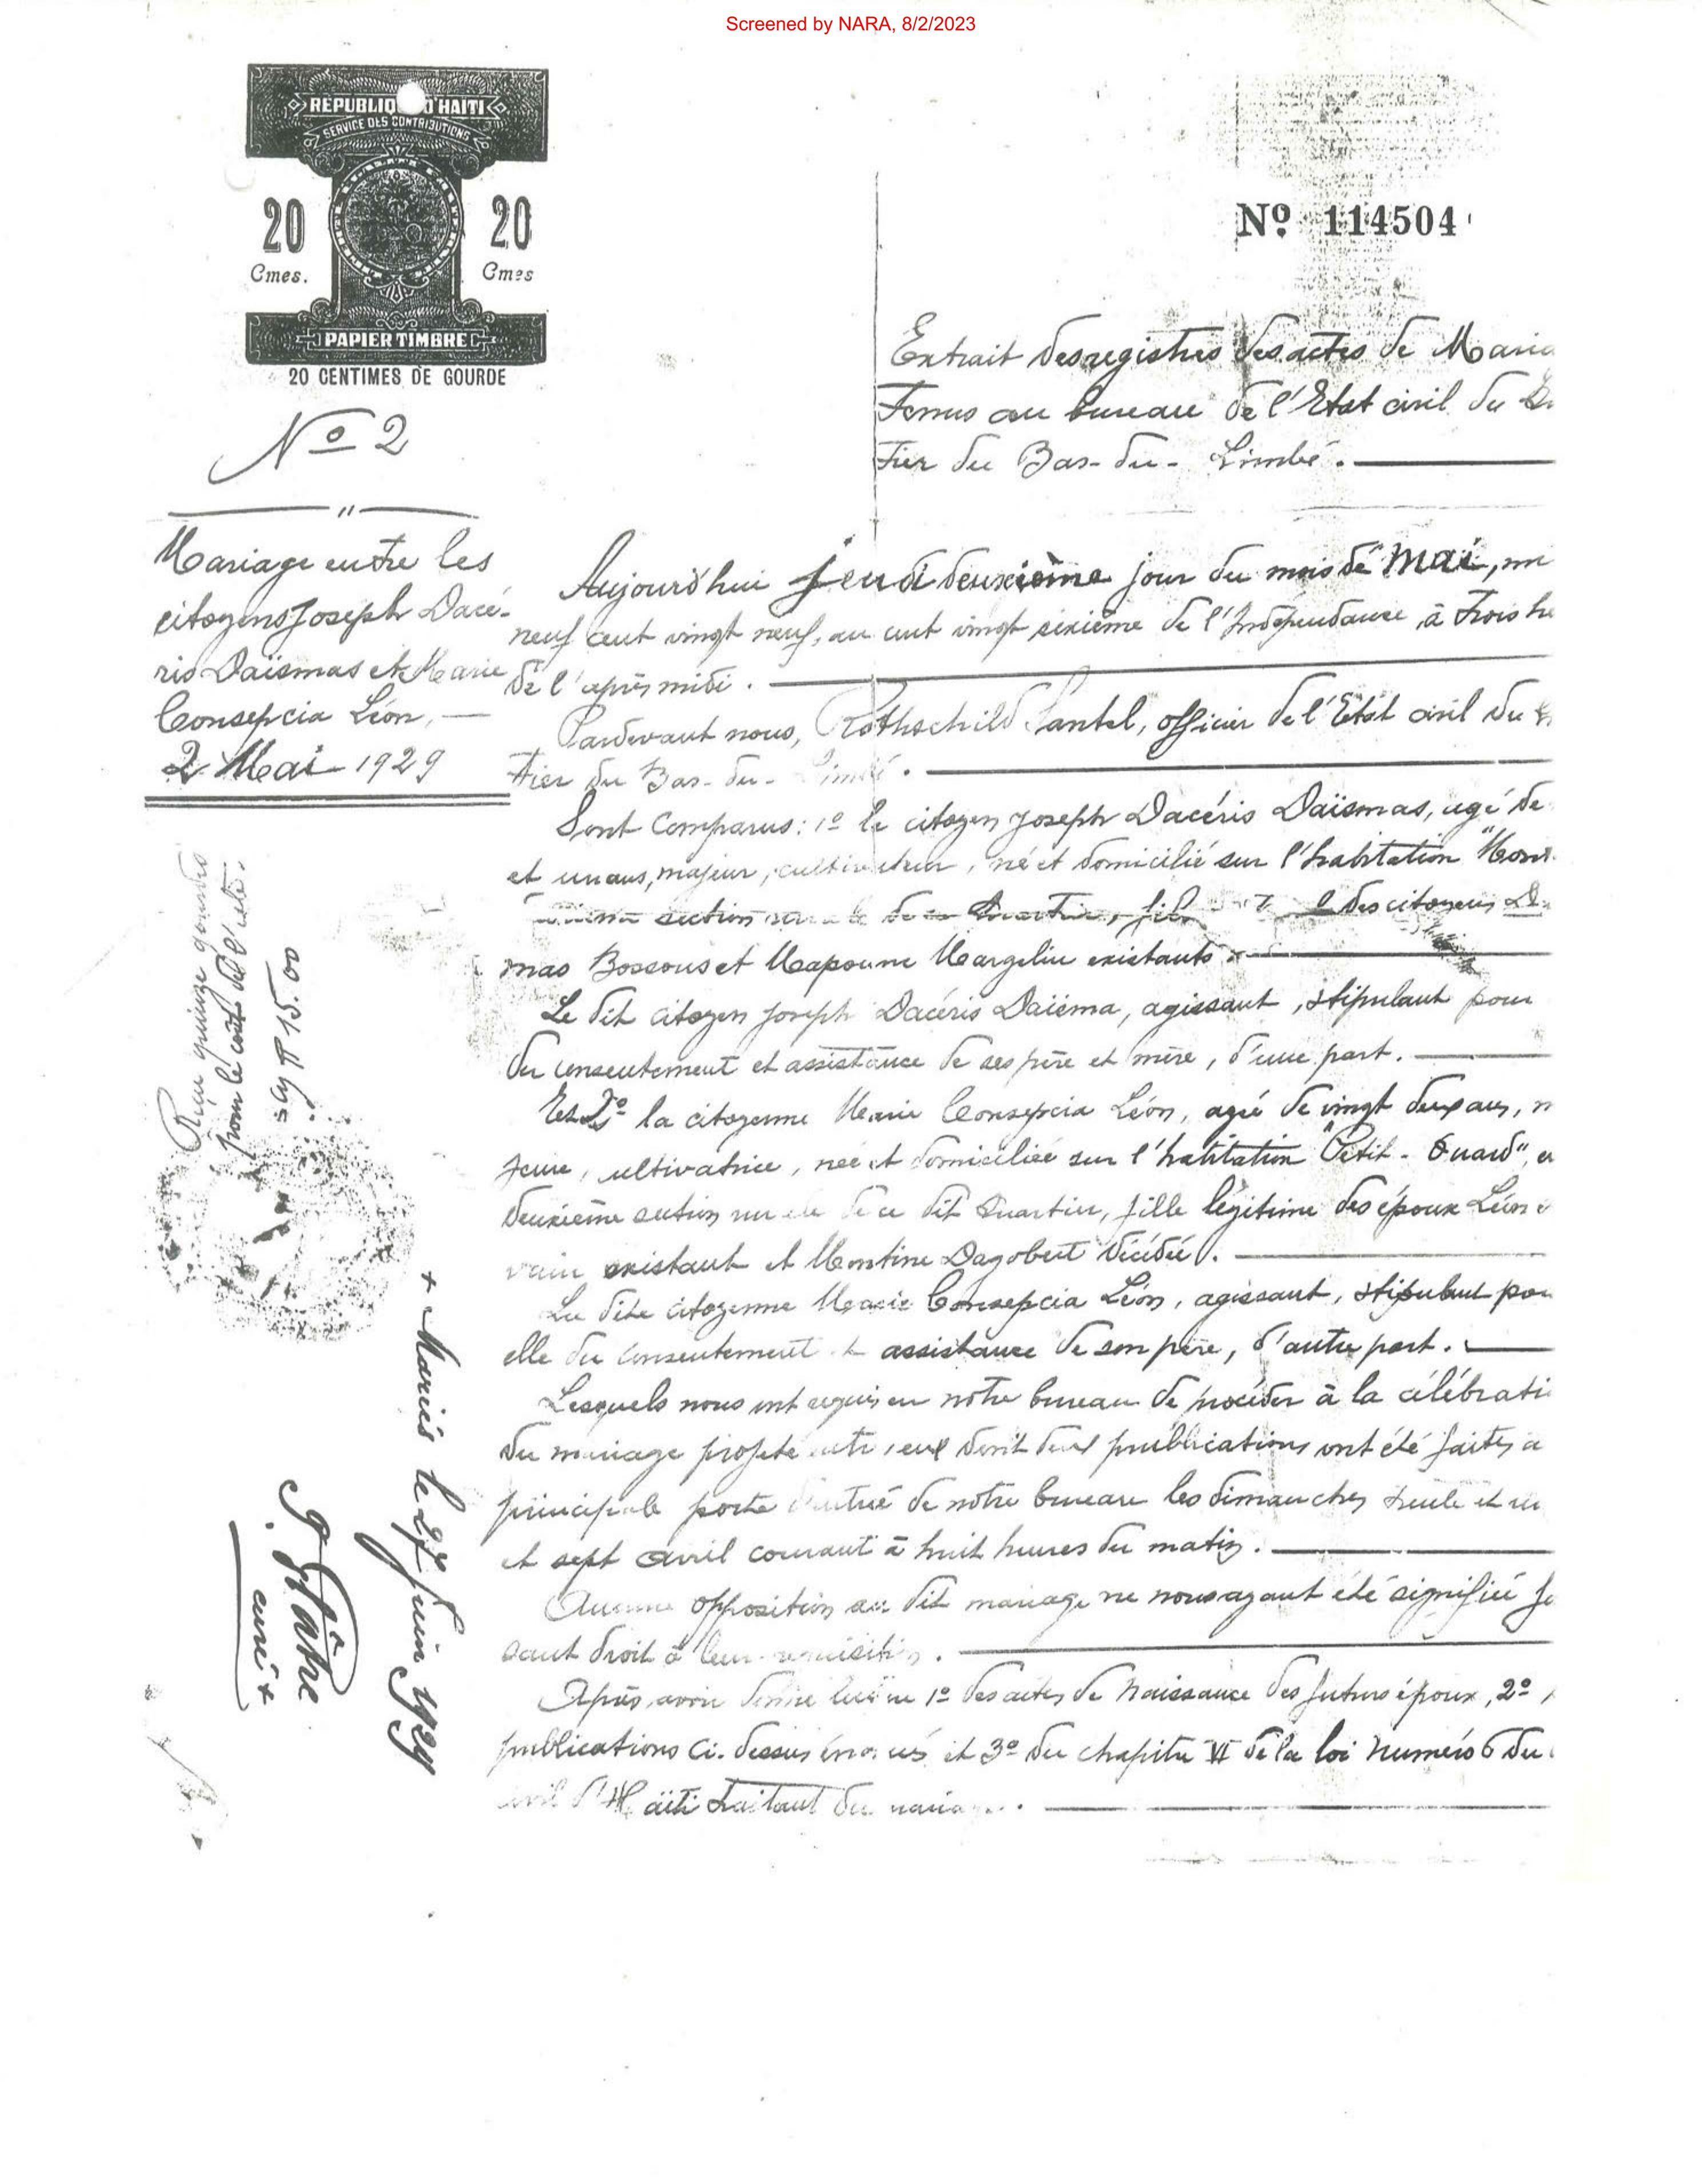 Screened by NARA, 8/2/2023
REPUBLIQ D'HAITI
SERVICE DES CONTRIBUTIONS
20 20
Cmes. Cmes
PAPIER TIMBRE
20 CENTIMES DE GOURDE
Nº 114504
Nº 2
Mariage entre les
citoyens Joseph Dacé-
ris Daïsmas et Marie
Consepcia Léon,
2 Mai 1929
Extrait des registres des actes de Maria
Tenus au bureau de l'Etat civil du
tier du Bas-du-Limbé.
Aujourd'hui jeudi deuxième jour du mois de mai, mi
neuf cent vingt neuf, au cent vingt sixième de l'Indépendance, à trois he
de l'après midi.
Pardevant nous, Rothschild Santel, officier de l'Etat civil du
tier du Bas-du-Limbé.
Sont comparus: 1º le citoyen Joseph Dacéris Daïsmas, agé de
et un ans, majeur, cultivateur, né et domicilié sur l'habitation
section des citoyens
mas Bossous et Mapoune Margeline existants
Le dit citoyen Joseph Dacéris Daïsma, agissant, stipulant pour
du consentement et assistance de ses père et mère, d'une part.
Et 2º la citoyenne Marie Consepcia Léon, agée de vingt deux ans, m
jeure, cultivatrice, née et domiciliée sur l'habitation "Petit-
deuxième section rurale de ce dit quartier, fille légitime des époux Léon
existant et Montine Dagobert décédée.
La dite citoyenne Marie Consepcia Léon, agissant, stipulant pou
elle du consentement et assistance de son père, d'autre part.
Lesquels nous ont requis en notre bureau de procéder à la célébrati
du mariage projeté entre eux dont deux publications ont été faites a
principale porte d'entrée de notre bureau les dimanches trente et un
et sept avril courant à huit heures du matin.
Aucune opposition au dit mariage ne nous ayant été signifiée fe
sant droit à leur réquisition.
Après avoir donné lecture 1º des actes de naissance des futurs époux, 2º
publications ci-dessus énoncés et 3º du chapitre VI de la loi numéro 6 du
civil d'Haïti traitant du mariage.
Reçu quinze gourdes
pour le coût de l'acte.
15.00
+ Mariés le 27 juin 1929
curé +